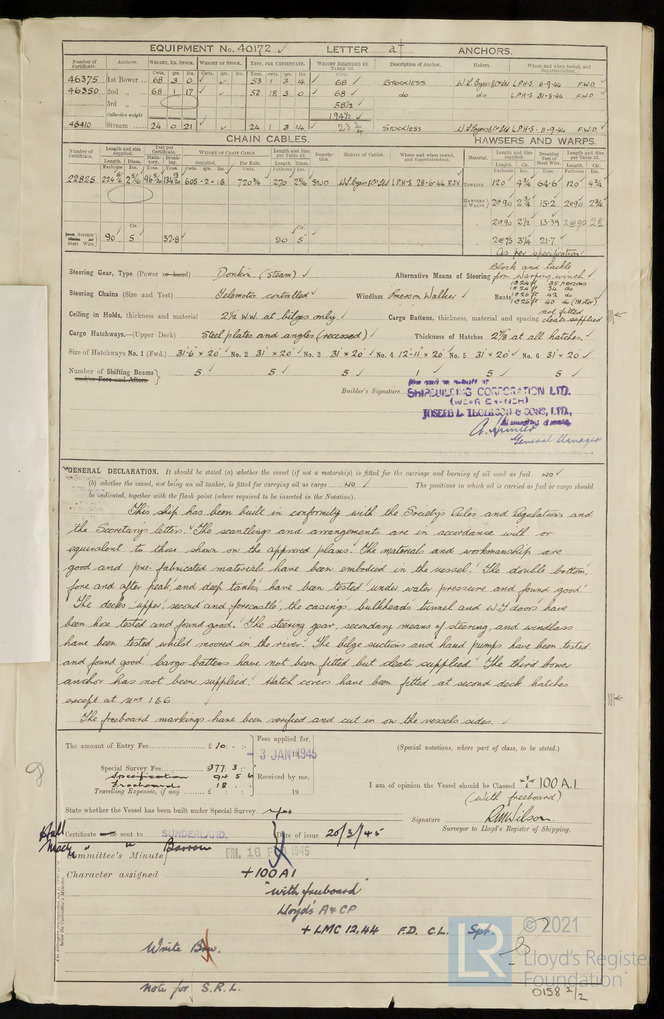 EQUIPMENT No. 40172 LETTER a† ANCHORS.
Number of Certificate. Anchors. WEIGHT, EX. STOCK. WEIGHT OF STOCK. TEST, PER CERTIFICATE. WEIGHT REQUIRED BY TABLE 53. Description of Anchor. Makers. Where and when tested, and Superintendent.
46375 1st Bower 68 3 0 53 1 3 14 68 Stockless L.P.H-S. 6-9-44 F.W.D.
46350 2nd " 68 1 17 52 18 3 0 68 do do L.P.H-S. 31-8-44 F.W.D.
3rd " 58½
Collective weight 194½
46410 Stream 24 0 21 24 1 3 14 Stockless L.P.H-S. 11-9-44 F.W.D.
CHAIN CABLES. HAWSERS AND WARPS.
Number of Certificate. Length and size supplied. Test per Certificate. WEIGHT OF CHAIN CABLE. Length and Size per Table 53. Description. Makers of Cables. Where and when tested, and Superintendent. Material. Length and Size supplied. Breaking Test of Steel Wire. Length and Size per Table 53.
22825 605-2-18 720¾ 270 L.P.H-S 28-6-44 Towline 120 4¾ 64.6 120 4¾
Hawsers & Warps 2@90 2¾ 15.2 2@90 2¾
2@90 2½ 13.39 2@90
Steel Wire 90 5 57.8 90 5 2@75 3¼ 21.7
As per specification
Steering Gear, Type (Power or hand) Donkin (Steam) Alternative Means of Steering Block and tackle from warping winch
Steering Chains (Size and Test) Telemotor controlled Windlass Emerson Walker Boats
Ceiling in Holds, thickness and material 2½ W.W. at bilges only Cargo Battens, thickness, material and spacing not fitted cleats supplied
Cargo Hatchways.—(Upper Deck) Steel plates and angles (recessed) Thickness of Hatches 2⅜ at all hatches.
Size of Hatchways No. 1 (Fwd.) 31'-6 × 20' No. 2 31' × 20' No. 3 31' × 20' No. 4 12'-11 × 20' No. 5 31' × 20' No. 6 31' × 20'
Number of Shifting Beams 5 5 5 1 5 5
and/or Fore and Afters
Builder's Signature
SHIPBUILDING CORPORATION LTD.
(WEAR BRANCH)
JOSEPH L. THOMPSON & SONS, LTD.,
A. Hunter
General Manager
GENERAL DECLARATION. It should be stated (a) whether the vessel (if not a motorship) is fitted for the carriage and burning of oil used as fuel NO
(b) whether the vessel, not being an oil tanker, is fitted for carrying oil as cargo NO The positions in which oil is carried as fuel or cargo should
be indicated, together with the flash point (where required to be inserted in the Notation).
This ship has been built in conformity with the Society's Rules and Regulations and
the Secretary's letter. The scantlings and arrangements are in accordance with or
equivalent to those shown on the approved plans. The materials and workmanship are
good and pre-fabricated materials have been embodied in the vessel. The double bottom
fore and after peak and deep tanks have been tested under water pressure and found good.
The decks upper, second and forecastle, the casings, bulkheads tunnel and W.T. doors have
been hose tested and found good. The steering gear, secondary means of steering, and windlass
have been tested whilst moored in the river. The bilge suctions and hand pumps have been tested
and found good. Cargo battens have not been fitted but cleats supplied. The third bower
anchor has not been supplied. Hatch covers have been fitted at second deck hatches
except at Nos 1 & 6
The freeboard markings have been verified and cut in on the vessels sides.
The amount of Entry Fee £ 10 : - : Fees applied for,
3 JAN 1945 (Special notations, where part of class, to be stated.)
Special Survey Fee £ 377. 3 :
Specification 90 5 6 Received by me,
Freeboard 18
Travelling Expenses, if any £ : : 19
I am of opinion the Vessel should be Classed +100 A.1.
(With freeboard)
State whether the Vessel has been built under Special Survey Yes
Signature R.M.Wilson.
Surveyor to Lloyd's Register of Shipping.
Hull Certificate sent to SUNDERLAND. Date of issue 20/3/45
Mach'y " " Barrow
Committee's Minute FRI. 16 FEB 1945
Character assigned +100A1
"with freeboard"
Lloyd's A & CP
+ LMC 12.44 F.D. C.L. Spt.
Write Bw.
Note for S.R.L.
LR © 2021
Lloyd's Register
Foundation
0158 2/2